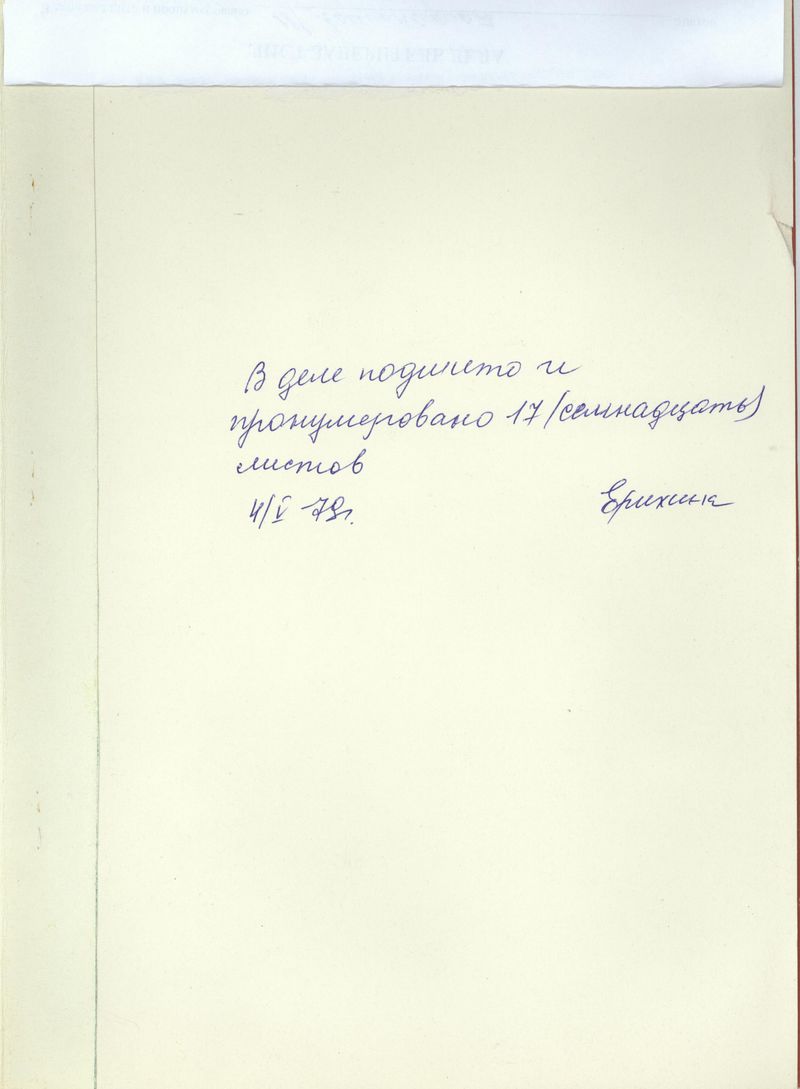 В деле подшито и
пронумеровано 17 (семнадцать)
листов
4/V 79г. Ерихина